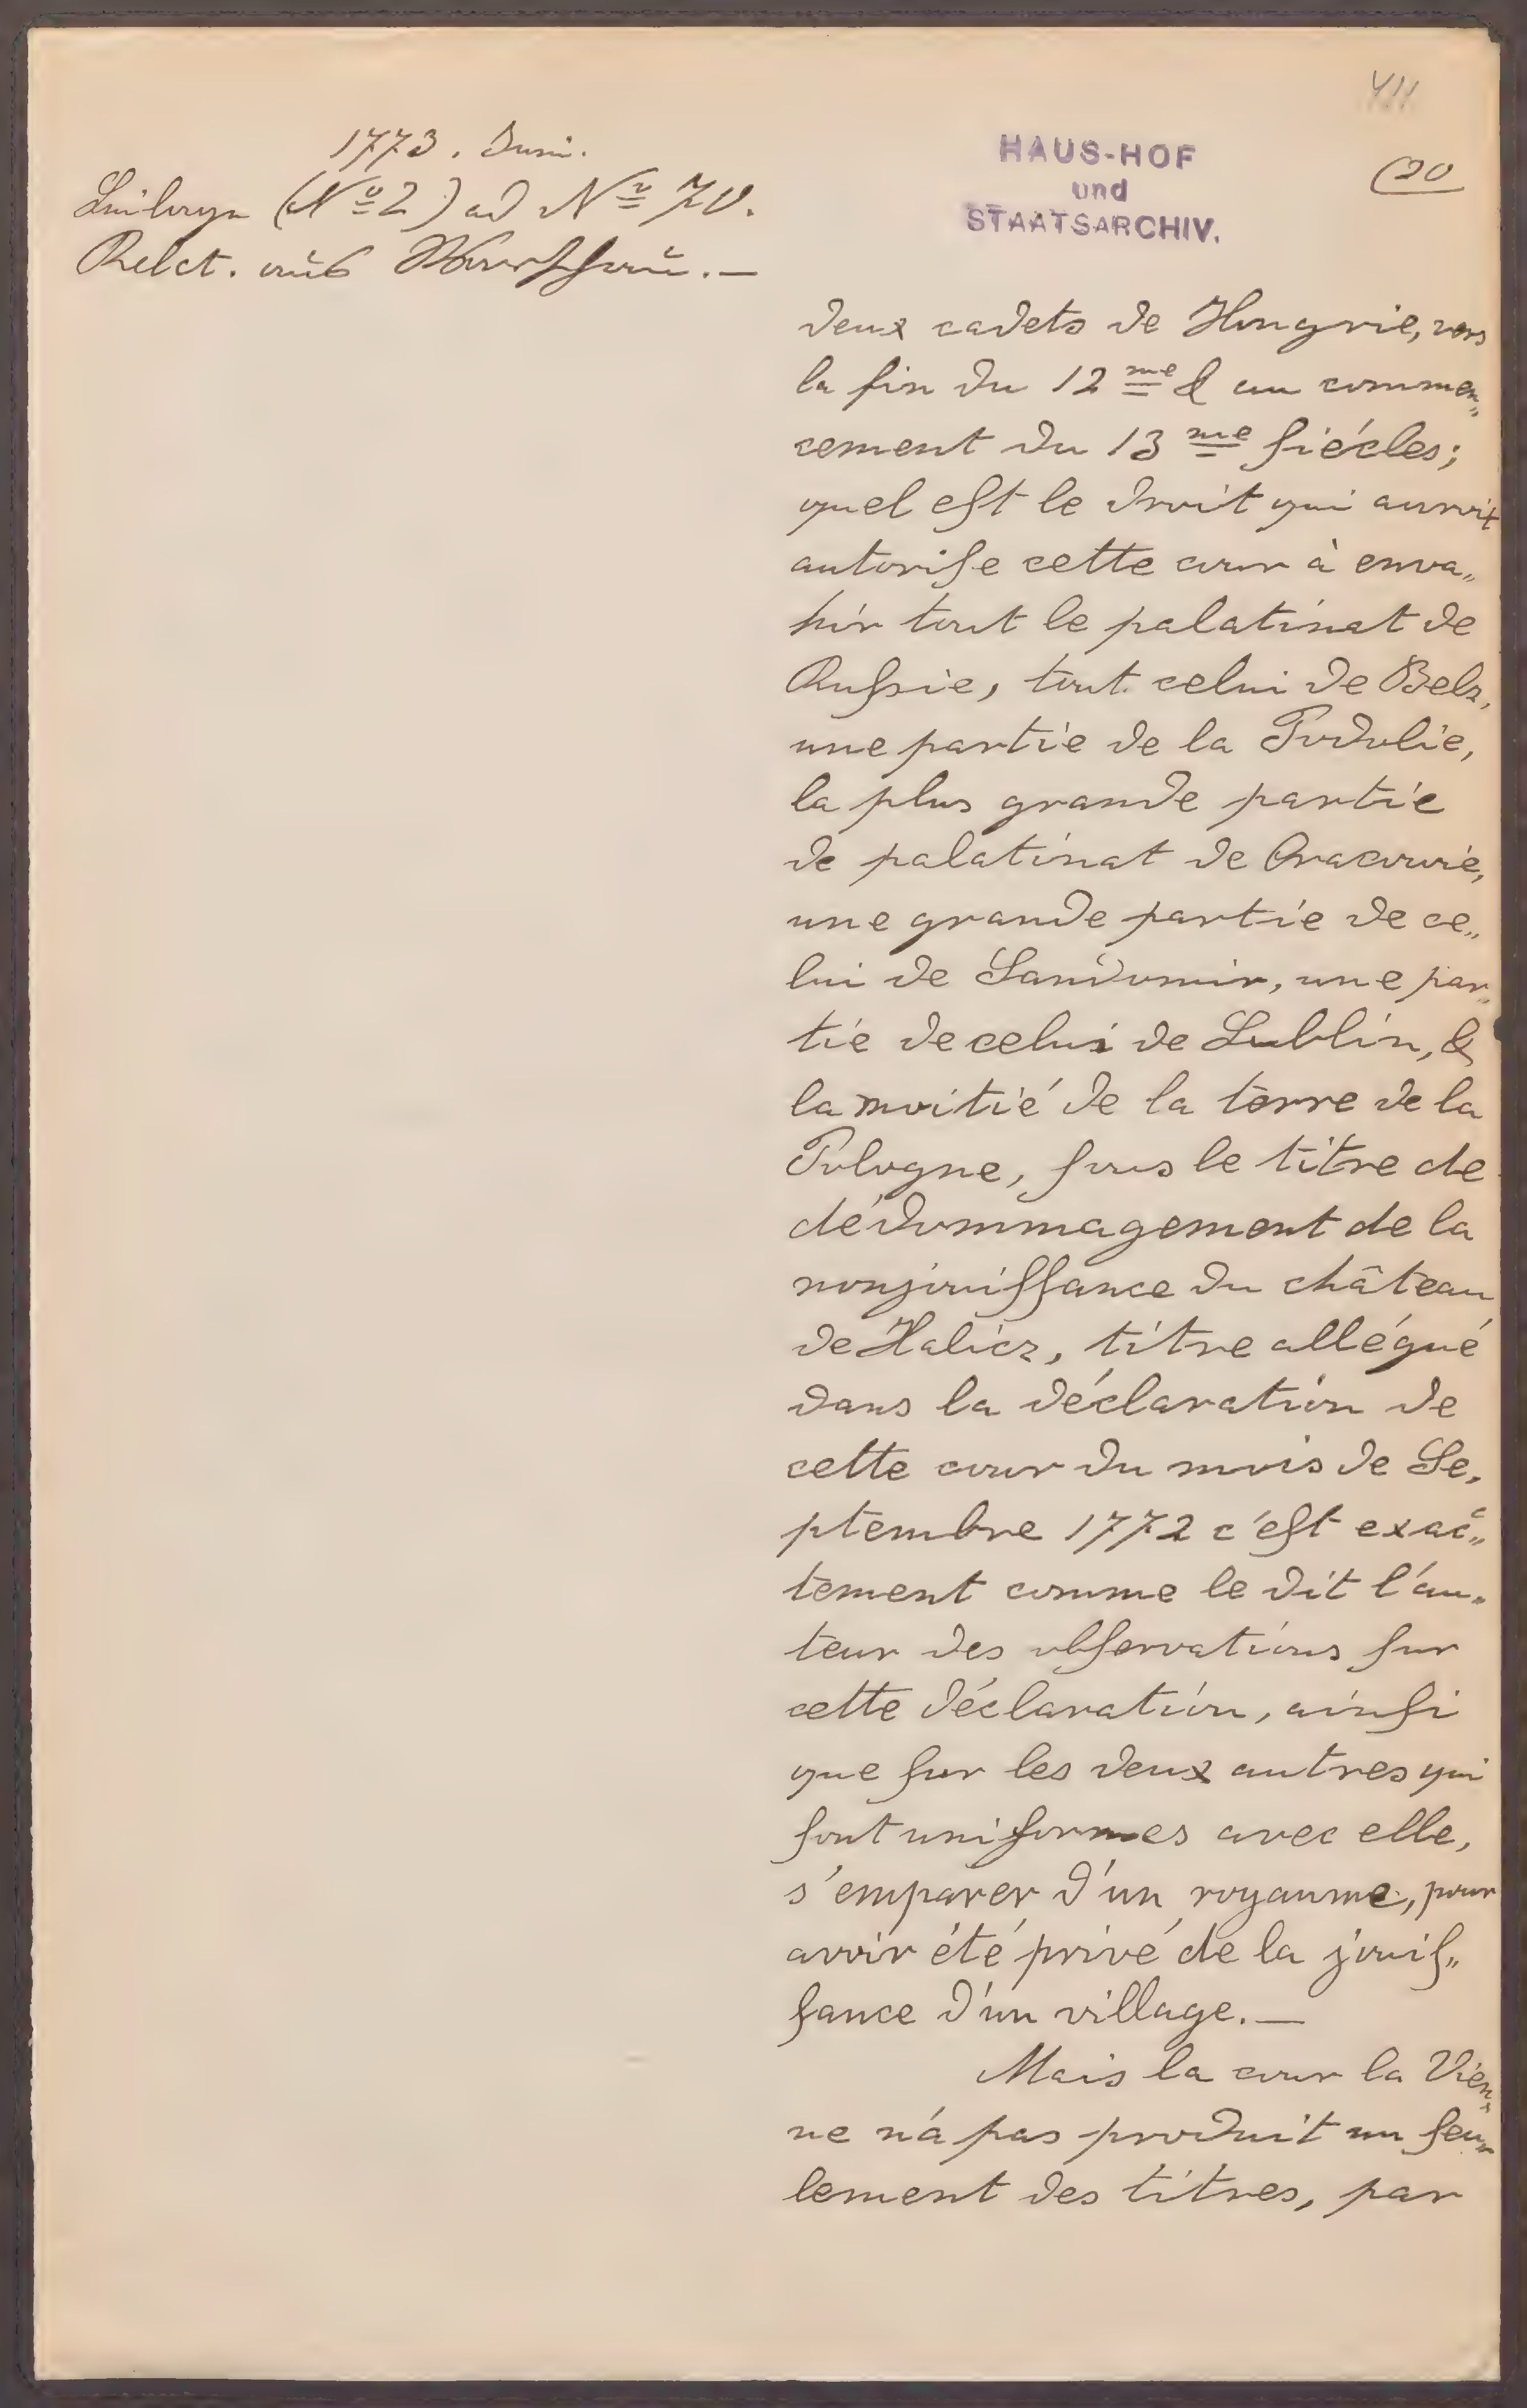 VII
1773. Juni.
Beilage (Nº 2) ad Nº 70.
Relat. aus Warschau.—
HAUS-HOF
und
STAATSARCHIV.
(20
deux cadets de Hongrie, vers
la fin du 12me & au commen„
cement du 13me siécles;
quel est le droit qui auroit
autorise cette cour à enva„
hir tout le palatinat de
Russie, tout celui de Belz,
une partie de la Podolie,
la plus grande partie
de palatinat de Cracovie,
une grande partie de ce„
lui de Sandomir, une par„
tie de celui de Lublin, &
la moitié de la terre de la
Pologne, sous le titre de
dédommagement de la
nonjouissance du château
de Halicz, titre allégué
dans la déclaration de
cette cour du mois de Se„
ptembre 1772 c'est exac„
tement comme le dit l'au„
teur des observations sur
cette déclaration, ainsi
que sur les deux autres qui
sont uniformes avec elle,
s'emparer d'un royaume, pour
avoir été privé de la jouis„
sance d'un village.—
Mais la cour la Vien„
ne n'a pas produit un seu„
lement des titres, par